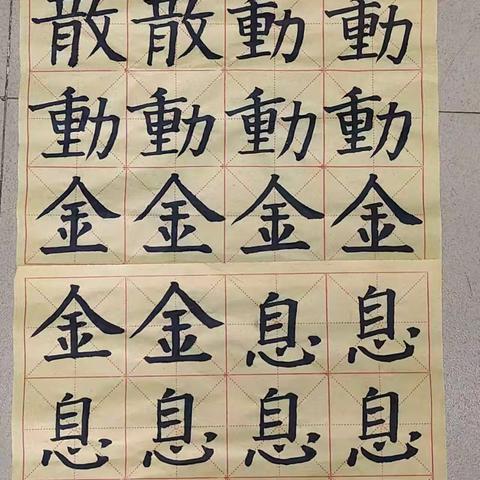 散散動動
動動動動
金金金金
金金息息
息息息息